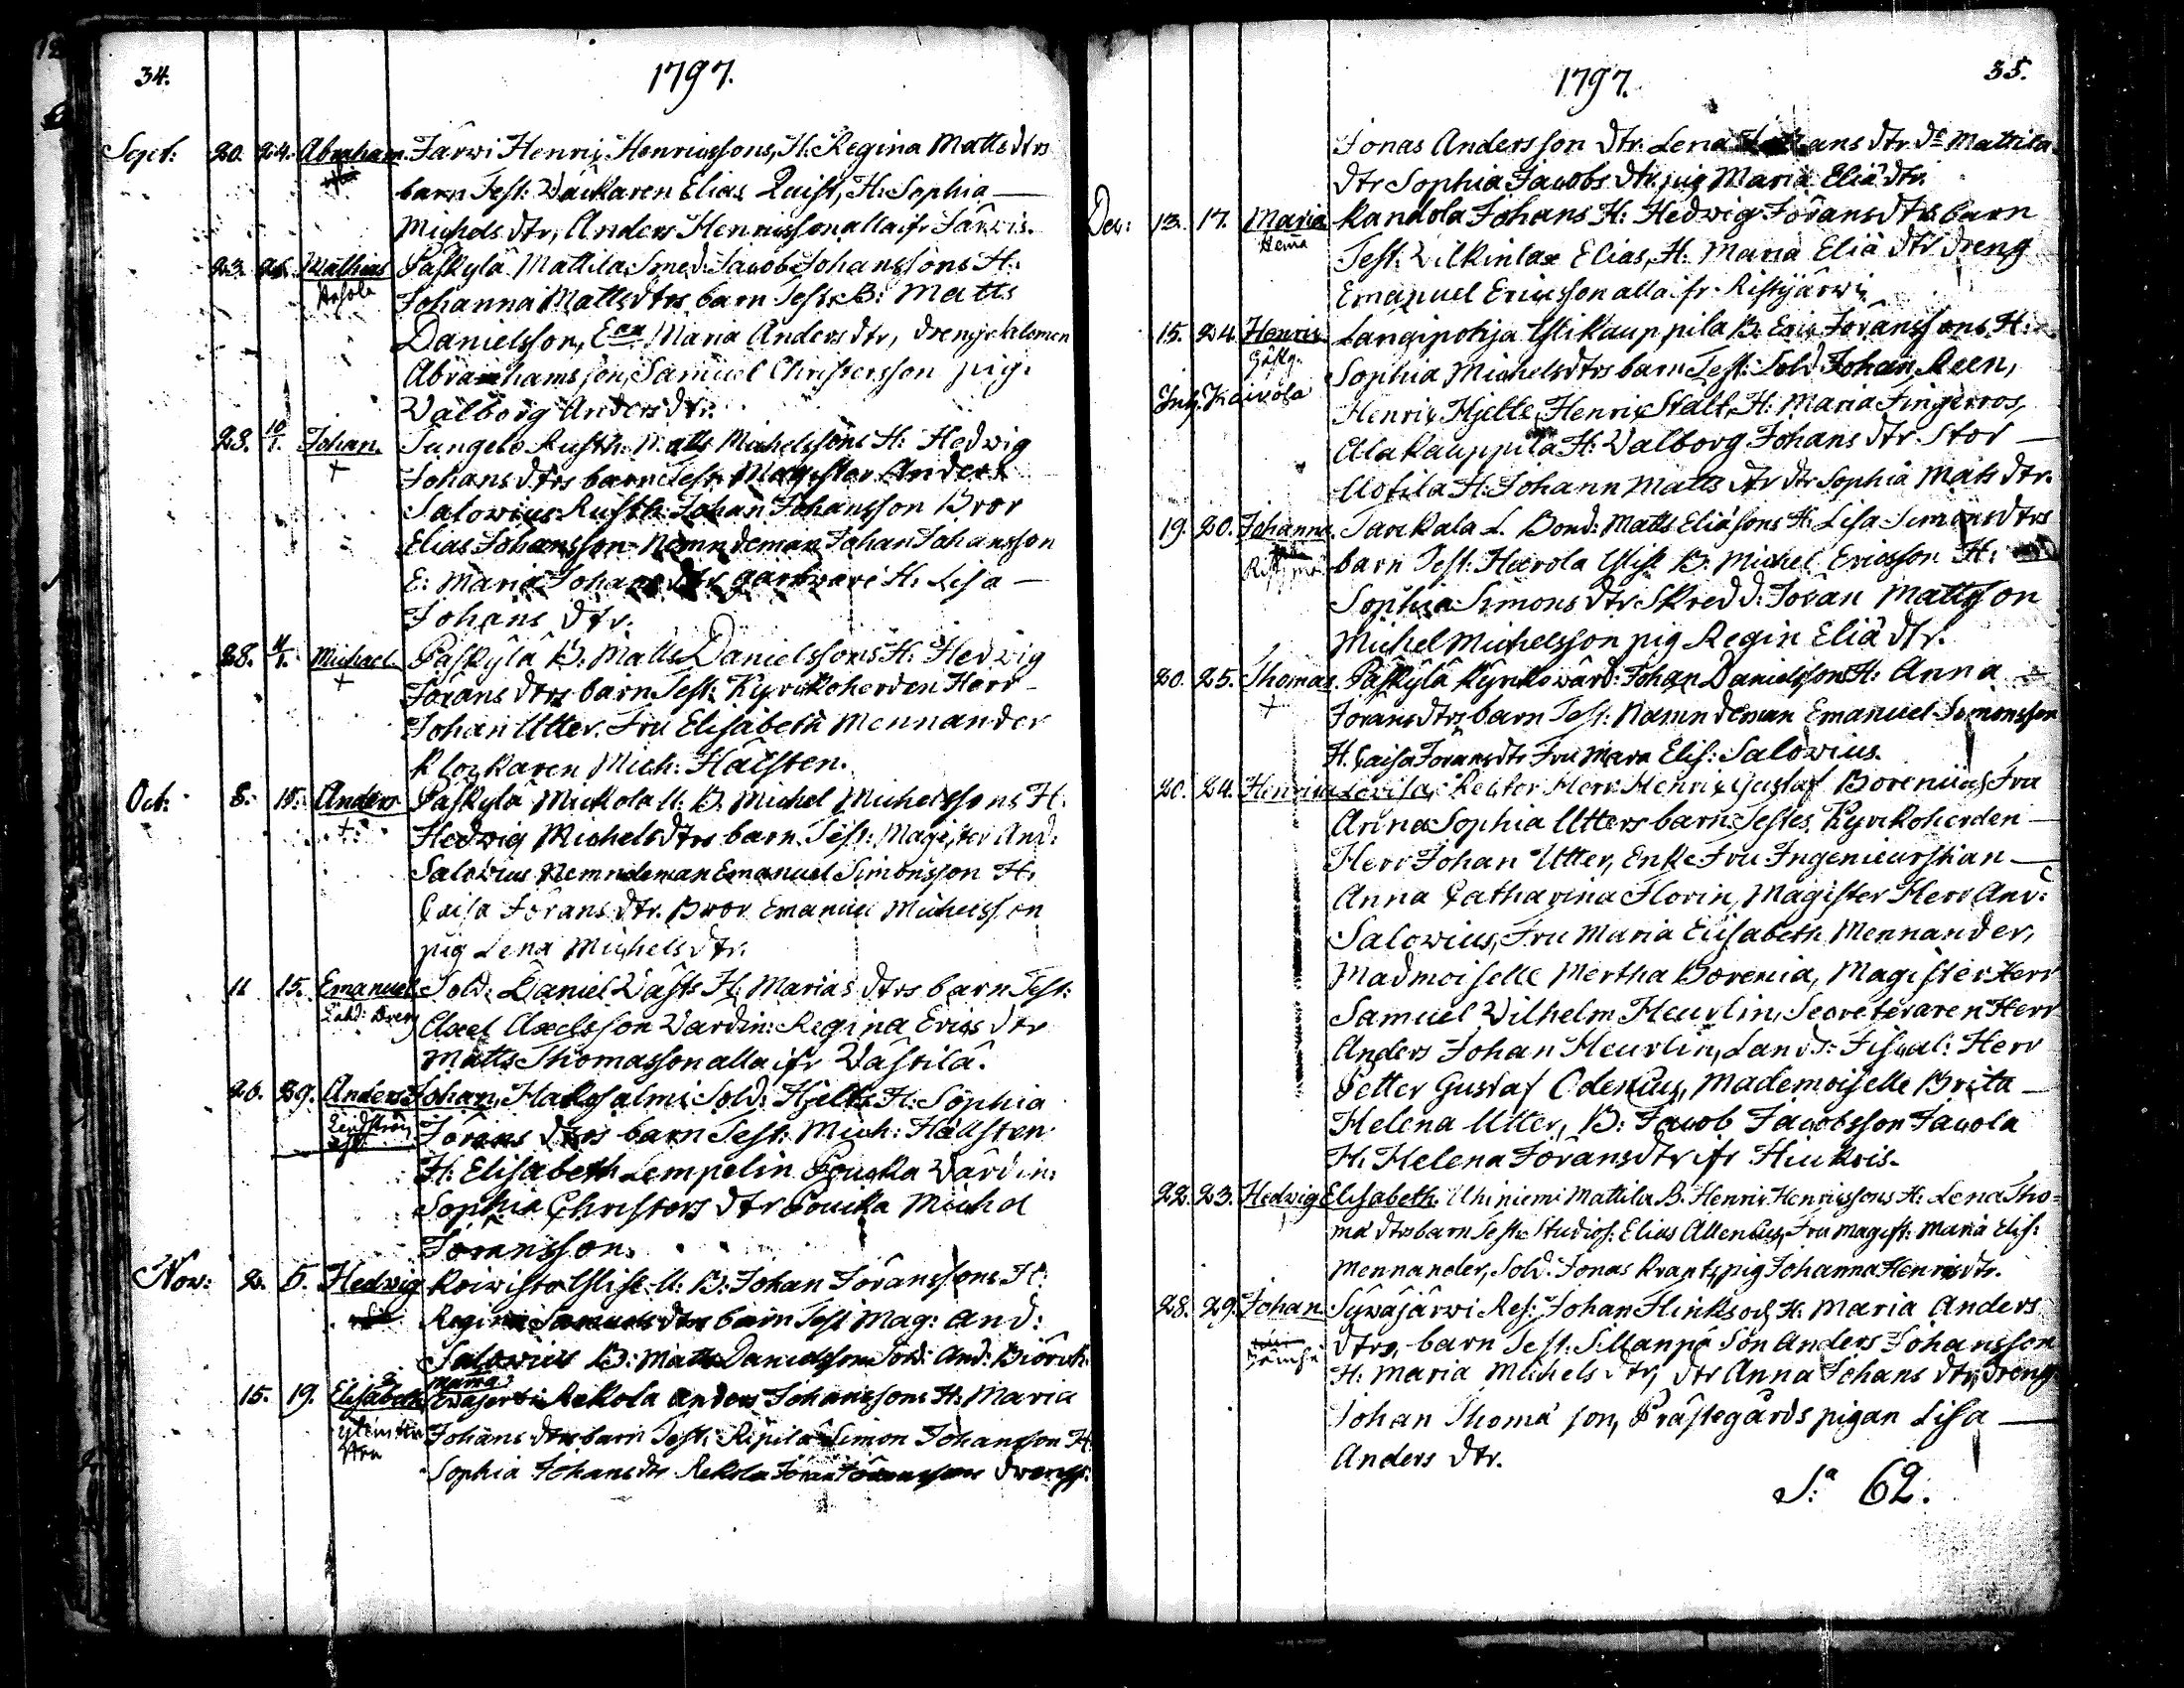 34.
1797.
Sept: 20. 24. Abraham. Järwi Henric Henricssons, H: Regina Matts dtrs
barn Test: Wäcklaren Elias Quist, H: Sophia —
Michels dtr, Anders Henricsson alla ifr Järwis.
23. 26. Mathias Påskylä Mattila Smed: Jacob Johanssons H:
Johanna Matts dtrs barn Test: B: Matts
Danielsson, Maria Anders dtr, dreng Salomon
Abrahamsson, Samuel Christersson pig.
Walborg Anders dtr.
28. 10/1. Johan. Rusth: Matts Michelssons H: Hedwig
+ Johans dtrs barn Test: Magister Anders
Salowius Rusth: Johan Johansson Bror
Elias Johansson Nemndeman Johan Johansson
E: Maria Johans dtr H: Lisa —
Johans dtr.
28. Michael Påskylä B. Matts Danielssons H: Hedwig
+ Jörans dtrs barn Test: Kyrckoherden Herr
Johan Utter. Fru Elisabeth Mennander
Klockaren Mich: Hålsten.
Oct: 8. 15. Anders Påskylä Mickola U: B. Michel Michelssons H:
+ Hedwig Michels dtrs barn Test: Magister And:
Salowius Nemndeman Emanuel Simonsson H:
Caisa Jörans dtr. Bror Emanuel Michelsson
pig Lena Michels dtr.
11 15. Emanuel Sold: Daniel Wåsts H: Marias dtrs barn Test:
Axel Axelsson Wardin: Regina Erics dtr
Matts Thomasson alla ifr Wästilä.
26. 29. Anders Johan. Hakosalmi Sold: Hjelts H: Sophia
Jörans dtrs barn Test: Mich: Hållsten
H: Elisabeth Lempelin Poucka Wärdin:
Sophia Christers dtr Poucka Michel
Jöransson.
Now: 2. 5. Hedwig Koiwisto Ylist U: B: Johan Jöranssons H:
Regina Samuels dtrs barn Test Mag: And:
Salowius B: Matts Danielsson Sold: And: Biörck.
15. 19. Elisabeth Rekola Anders Johanssons H: Maria
Johans dtrs barn Test: Ripilä Simon Johansson H
Sophia Johans dtr Rekola Jöran Jöransson dreng.
1797.
35.
Jonas Andersson dtr. Lena dtr. Mattila
dtr Sophia Jacobs dtr, pig Maria Eliä dtr.
Dec: 13. 17. Maria Kandola Johans H: Hedwig Jörans dtrs barn
Test: Wilkinlax Elias, H: Maria Eliä dtr dreng
Emanuel Ericsson alla ifr. Ristijärwi
15. 24. Henric Langipohja Ylikauppila B. Eric Jöranssons H:
Sophia Michels dtrs barn Test: Sold Johan Reen,
Kaivola Henric Hjelte, Henric Stalt, H: Maria Fingerros,
Alakauppila H: Walborg Johans dtr Stor —
H: Johann Matts dtr dtr Sophia Mats dtr.
19. 20. Johanna. L. Bond: Matts Eliäsons H: Lisa Simons dtrs
barn Test: Heerola Ylist B. Michel Ericsson H:
Sophia Simons dtr Skredd: Jöran Mattsson
Michel Michelsson pig Regin Eliä dtr.
20. 25. Thomas. Påskylä Kyrkowärd: Johan Danielsson H: Anna
+ Jörans dtrs barn Test: Namndeman Emanuel Simonsson
H. Caisa Jörans dtr Fru Mara Elis: Salowius.
20. 24. Henrica Lovisa, Rector Herr Henric Gustaf Borenius, Fru
Anna Sophia Utters barn: Testes Kyrckoherden —
Herr Johan Utter, Enke Fru Ingenieurskan —
Anna Catharina Florin, Magister Herr And:
Salowius, Fru Maria Elisabeth Mennander,
Madmoiselle Mertha Borenia, Magister Herr
Samuel Wilhelm Heurlin, Secreteraren Herr
Anders Johan Heurlin, Lands: Fiscal: Herr
Petter Gustaf Odenius, Mademoiselle Brita —
Helena Utter, B: Jacob Jacobsson Jacola
H. Helena Jörans dtr ifr Hiukois.
22. 23. Hedwig Elisabeth. Uhiniemi Mattila B. Henric Henricssons H: Lena Tho-
mä dtrs barn Test: Studios: Elias Allenius, Fru Magist: Maria Elis:
Mennander, Sold: Jonas Krants, pig Johanna Henrics dtr.
28. 29. Johan Sywäjärwi Res: Johan Flinks och H: Maria Anders
dtrs, barn Test: Sillanpä Son Anders Johansson
H: Maria Michels dtr, dtr Anna Johans dtr, dreng
Johan Thomä son, Prästegårds pigan Lisa —
Anders dtr.
S:a 62.